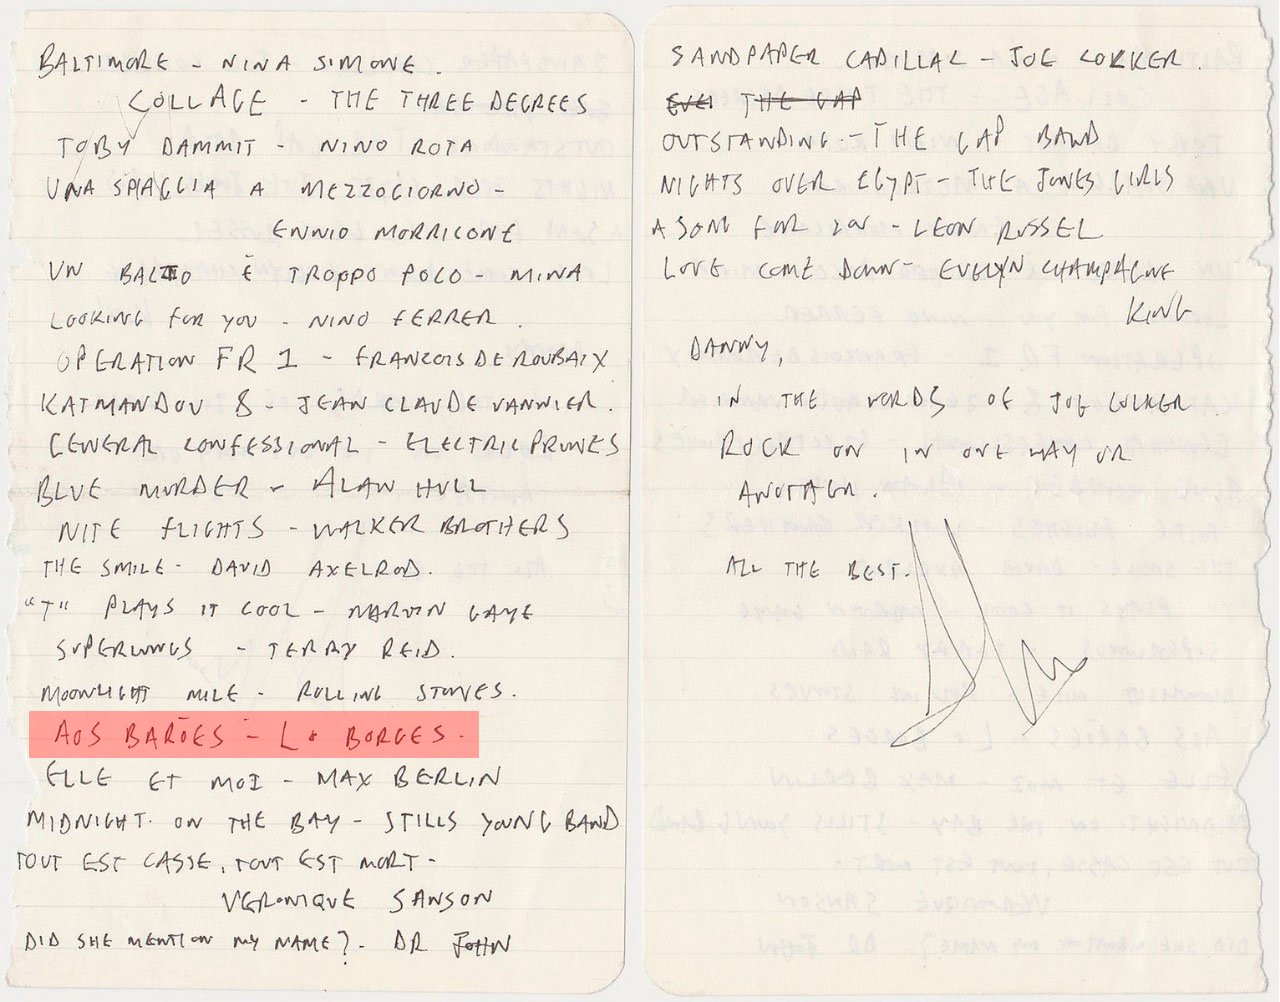 BALTIMORE - NINA SIMONE.
COLLAGE - THE THREE DEGREES
TOBY DAMMIT - NINO ROTA
UNA SPAGGIA A MEZZOGIORNO -
ENNIO MORRICONE
UN BACIO È TROPPO POCO - MINA
LOOKING FOR YOU - NINO FERRER.
OPERATION FR 1 - FRANCOIS DE ROUBAIX
KATMANDOU 8 - JEAN CLAUDE VANNIER.
GENERAL CONFESSIONAL - ELECTRIC PRUNES
BLUE MURDER - ALAN HULL
NITE FLIGHTS - WALKER BROTHERS
THE SMILE - DAVID AXELROD.
"T" PLAYS IT COOL - MARVIN GAYE
SUPERLUNGS - TERRY REID.
MOONLIGHT MILE - ROLLING STONES.
AOS BARÕES - Lo BORGES.
ELLE ET MOI - MAX BERLIN
MIDNIGHT ON THE BAY - STILLS YOUNG BAND
TOUT EST CASSE, TOUT EST MORT -
VERONIQUE SANSON
DID SHE MENTION MY NAME? - DR JOHN
SANDPAPER CADILLAC - JOE COCKER.
THE GAP
OUTSTANDING - THE GAP BAND
NIGHTS OVER EGYPT - THE JONES GIRLS
A SONG FOR YOU - LEON RUSSEL
LOVE COME DOWN - EVELYN CHAMPAGNE
KING
DANNY,
IN THE WORDS OF JOE COCKER
ROCK ON IN ONE WAY OR
ANOTHER.
ALL THE BEST.